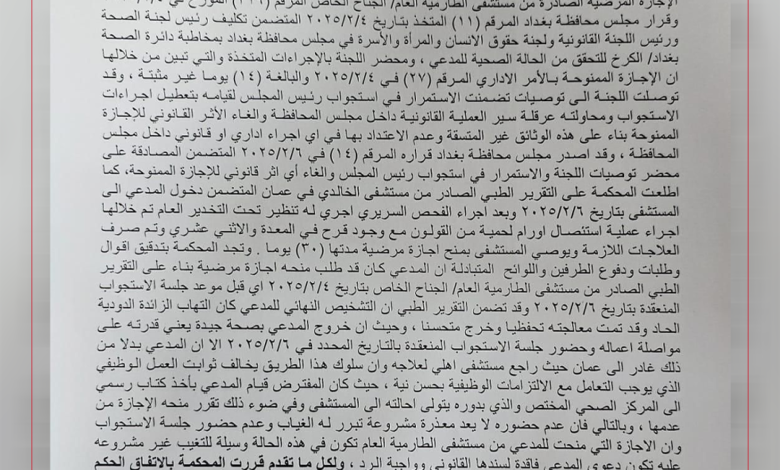 الإجازة المرضية الصادرة من مستشفى الطارمية العام/ الجناح الخاص المرقم
وقرار مجلس محافظة بغداد المرقم (١١) المتخذ بتاريخ ٢٠٢٥/٢/٤ المتضمن تكليف رئيس لجنة الصحة
ورئيس اللجنة القانونية ولجنة حقوق الانسان والمرأة والأسرة في مجلس محافظة بغداد بمخاطبة دائرة الصحة
بغداد/ الكرخ للتحقق من الحالة الصحية للمدعي ، ومحضر اللجنة بالإجراءات المتخذة والتي تبين من خلالها
ان الإجازة الممنوحة بالأمر الاداري المرقم (٢٧) في ٢٠٢٥/٢/٤ والبالغة (١٤) يوما غير مثبتة ، وقد
توصلت اللجنة الى توصيات تضمنت الاستمرار في استجواب رئيس المجلس لقيامه بتعطيل اجراءات
الاستجواب ومحاولته عرقلة سير العملية القانونية داخل مجلس المحافظة والغاء الأثر القانوني للإجازة
الممنوحة بناء على هذه الوثائق غير المتسقة وعدم الاعتداد بها في اي اجراء اداري او قانوني داخل مجلس
المحافظة ، وقد اصدر مجلس محافظة بغداد قراره المرقم (١٤) في ٢٠٢٥/٢/٦ المتضمن المصادقة على
محضر توصيات اللجنة والاستمرار في استجواب رئيس المجلس والغاء أي اثر قانوني للإجازة الممنوحة، كما
اطلعت المحكمة على التقرير الطبي الصادر من مستشفى الخالدي في عمان المتضمن دخول المدعي الى
المستشفى بتاريخ ٢٠٢٥/٢/٦ وبعد اجراء الفحص السريري اجري له تنظير تحت التخدير العام تم خلالها
اجراء عملية استئصال اورام لحمية من القولون مع وجود قرح في المعدة والاثني عشري وتم صرف
العلاجات اللازمة ويوصي المستشفى بمنح اجازة مرضية مدتها (٣٠) يوما . وتجد المحكمة بتدقيق اقوال
وطلبات ودفوع الطرفين واللوائح المتبادلة ان المدعي كان قد طلب منحه اجازة مرضية بناء على التقرير
الطبي الصادر من مستشفى الطارمية العام/ الجناح الخاص بتاريخ ٢٠٢٥/٢/٤ اي قبل موعد جلسة الاستجواب
المنعقدة بتاريخ ٢٠٢٥/٢/٦ وقد تضمن التقرير الطبي ان التشخيص النهائي للمدعي كان التهاب الزائدة الدودية
الحاد وقد تمت معالجته تحفظيا وخرج متحسنا ، وحيث ان خروج المدعي بصحة جيدة يعني قدرته على
مواصلة اعماله وحضور جلسة الاستجواب المنعقدة بالتاريخ المحدد في ٢٠٢٥/٢/٦ الا ان المدعي بدلا من
ذلك غادر الى عمان حيث راجع مستشفى اهلي لعلاجه وان سلوك هذا الطريق يخالف ثوابت العمل الوظيفي
الذي يوجب التعامل مع الالتزامات الوظيفية بحسن نية ، حيث كان المفترض قيام المدعي بأخذ كتاب رسمي
الى المركز الصحي المختص والذي بدوره يتولى احالته الى المستشفى وفي ضوء ذلك تقرر منحه الإجازة من
عدمها ، وبالتالي فان عدم حضوره لا يعد معذرة مشروعة تبرر له الغياب وعدم حضور جلسة الاستجواب
وان الاجازة التي منحت للمدعي من مستشفى الطارمية العام تكون في هذه الحالة وسيلة للتغيب غير مشروعه
عليه تكون دعوى المدعي فاقدة لسندها القانوني وواجبة الرد ، ولكل ما تقدم قررت المحكمة بالاتفاق الحكم